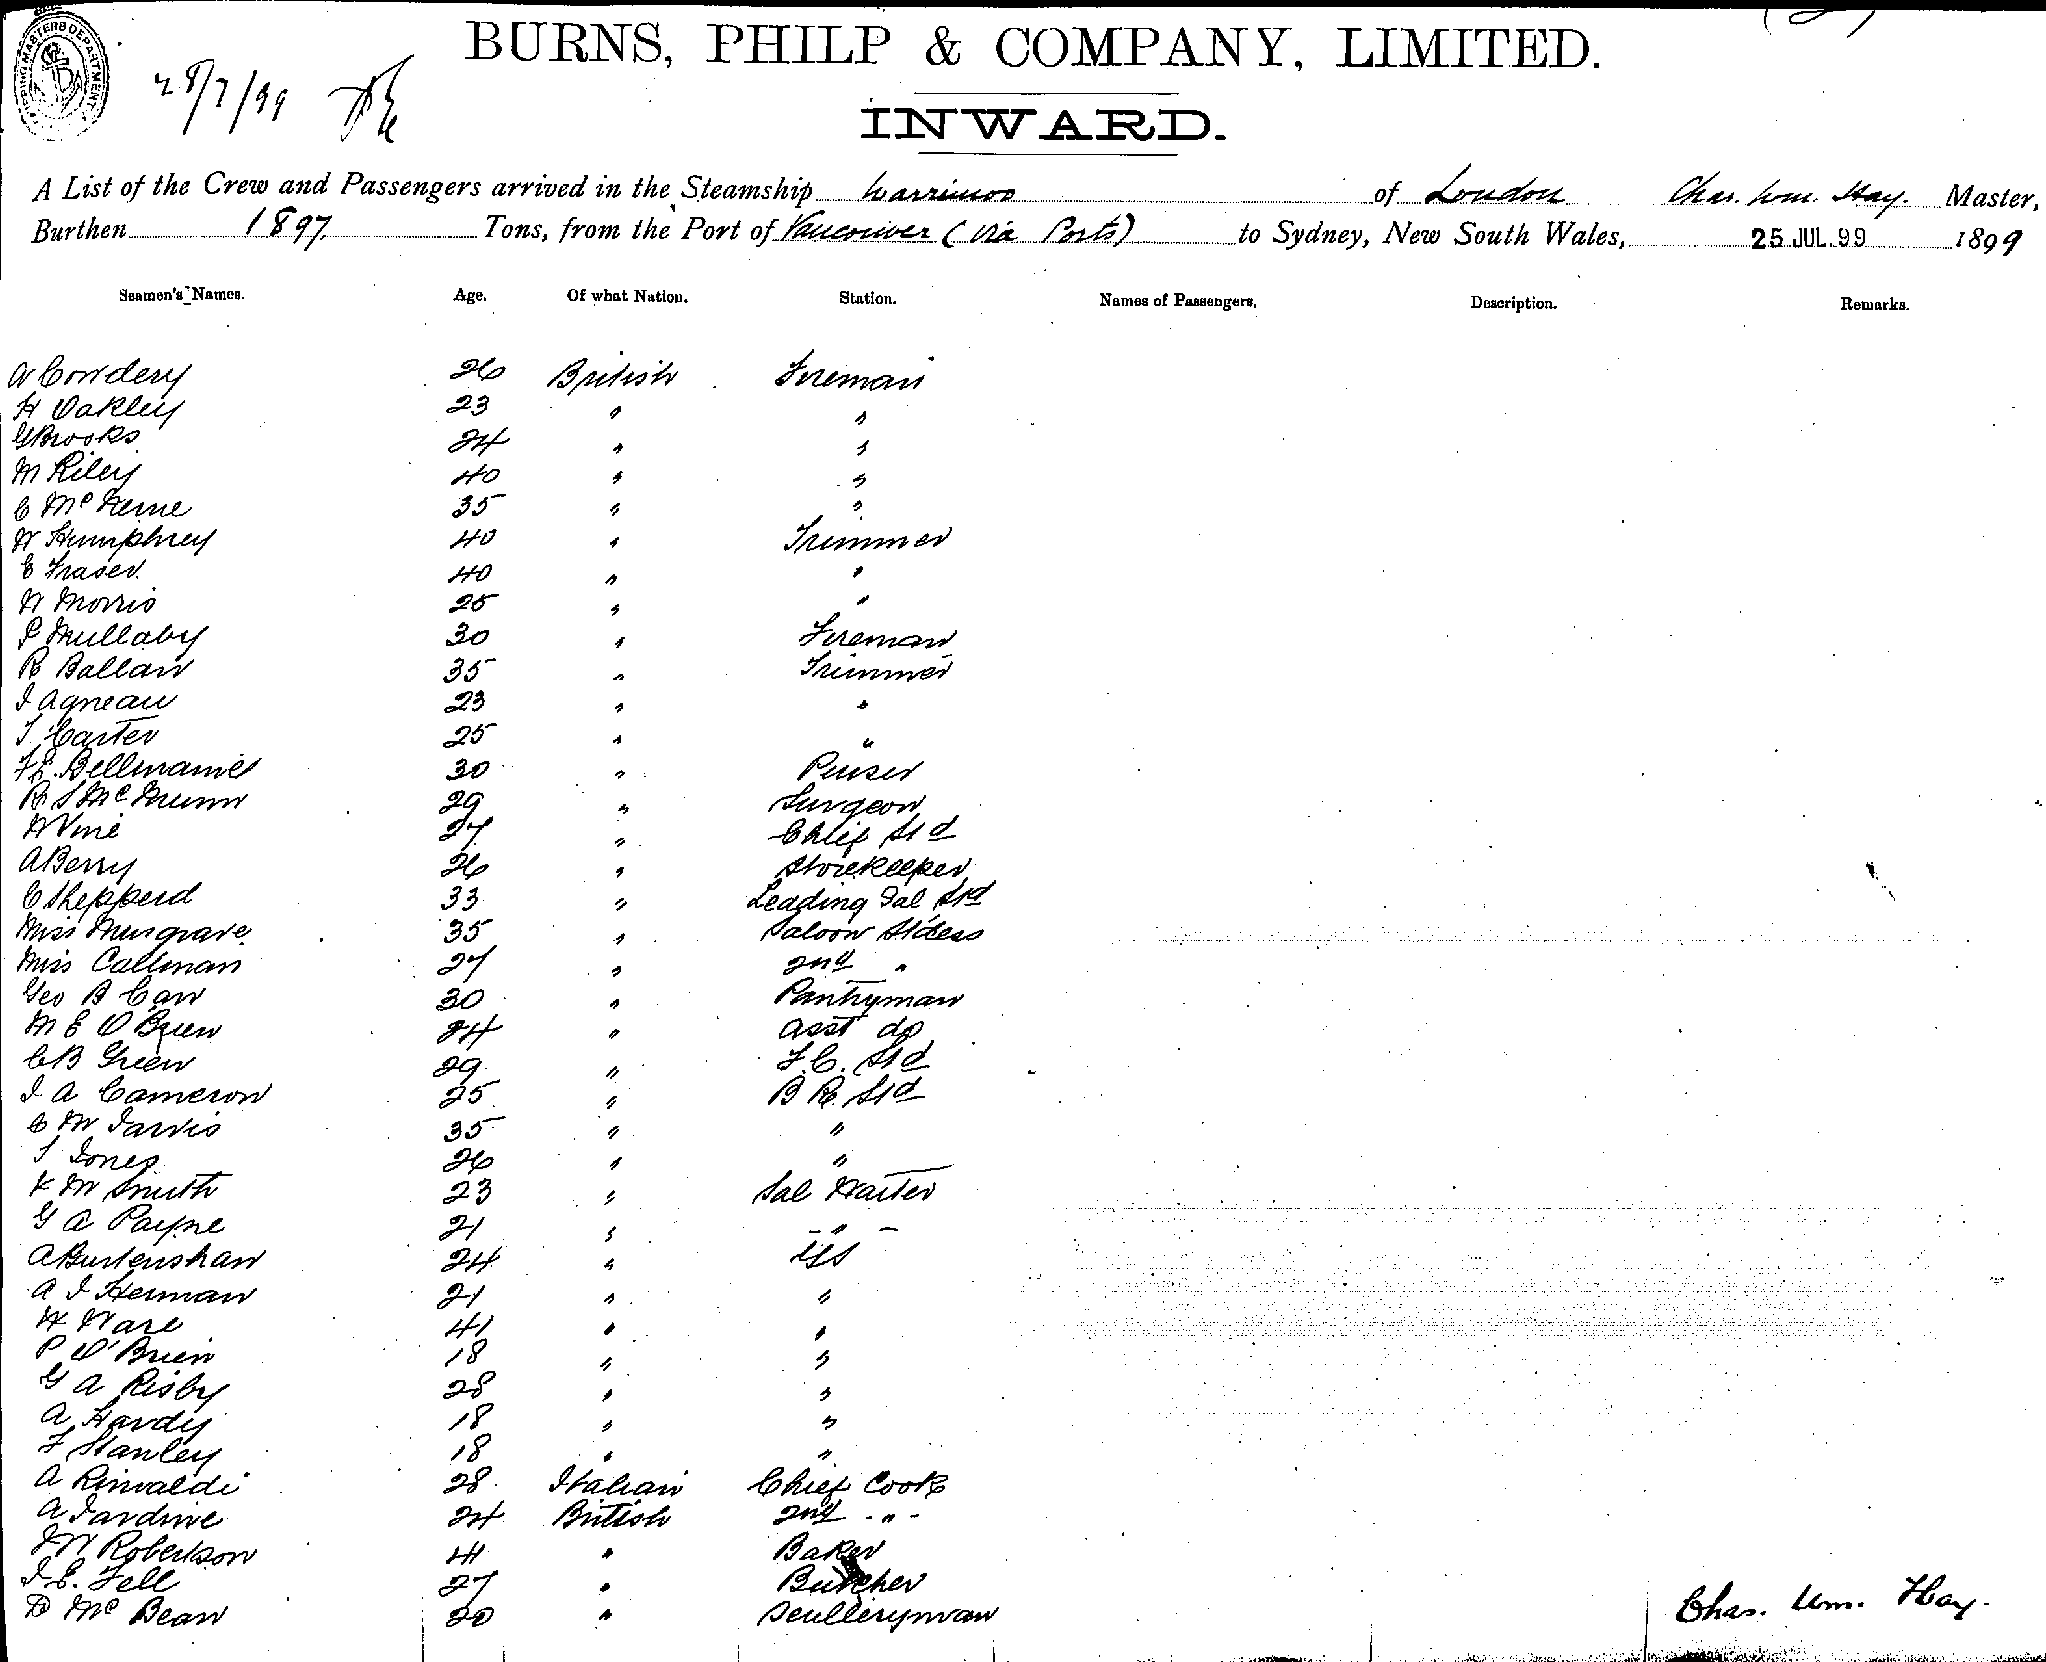 SHIPPING MASTERS DEPARTMENT
28/7/99
BURNS, PHILP & COMPANY, LIMITED.
INWARD.
A List of the Crew and Passengers arrived in the Steamship Warrimoo of London Chas. Wm. Hay. Master,
Burthen 1897. Tons, from the Port of Vancouver (via Ports) to Sydney, New South Wales, 25 JUL.99 1899
Seamen's Names. Age. Of what Nation. Station. Names of Passengers. Description. Remarks.
W Cowdery 26 British Fireman
H Oakley 23 " "
G Brooks 24 " "
M Riley 40 " "
C Mc 35 " "
W Humphrey 40 " Trimmer
C Fraser. 40 " "
W Morris 25 " "
P Mullaby 30 " Fireman
R Ballan 35 " Trimmer
J Agneau 23 " "
T. Carter 25 " "
30 " Purser
R S McMunn 29 " Surgeon
W Vine 27 " Chief Std
A Berry 26 " Storekeeper
C Shepperd 33 " Leading Sal Std
Miss Musgrave. 35 " Saloon Stdess
Miss Callman 27 " 2nd "
Geo B Carr 30 " Pantryman
M E O'Brien 24 " Asst do
C B Green 29 " F.C. Std
J A Cameron 25 " B R. Std
C W Jarvis 35 " "
S Jones 26 " "
K W Smith 23 " Sal Waiter
G A Payne 21 " - " -
A Burtenshaw 24 "
A J Herman 21 " "
H Ware 41 " "
P O'Brien 18 " "
G A Risby 28 " "
A Hardy 18 " "
F Stanley 18 " "
A Rinvaldi 28. Italian Chief Cook
A Jardine 24 British 2nd - " -
J W Robertson 41 " Baker
J. E. Fell 27 " Butcher
D Mc Bean 20 " Sculleryman
Chas. Wm. Hay.